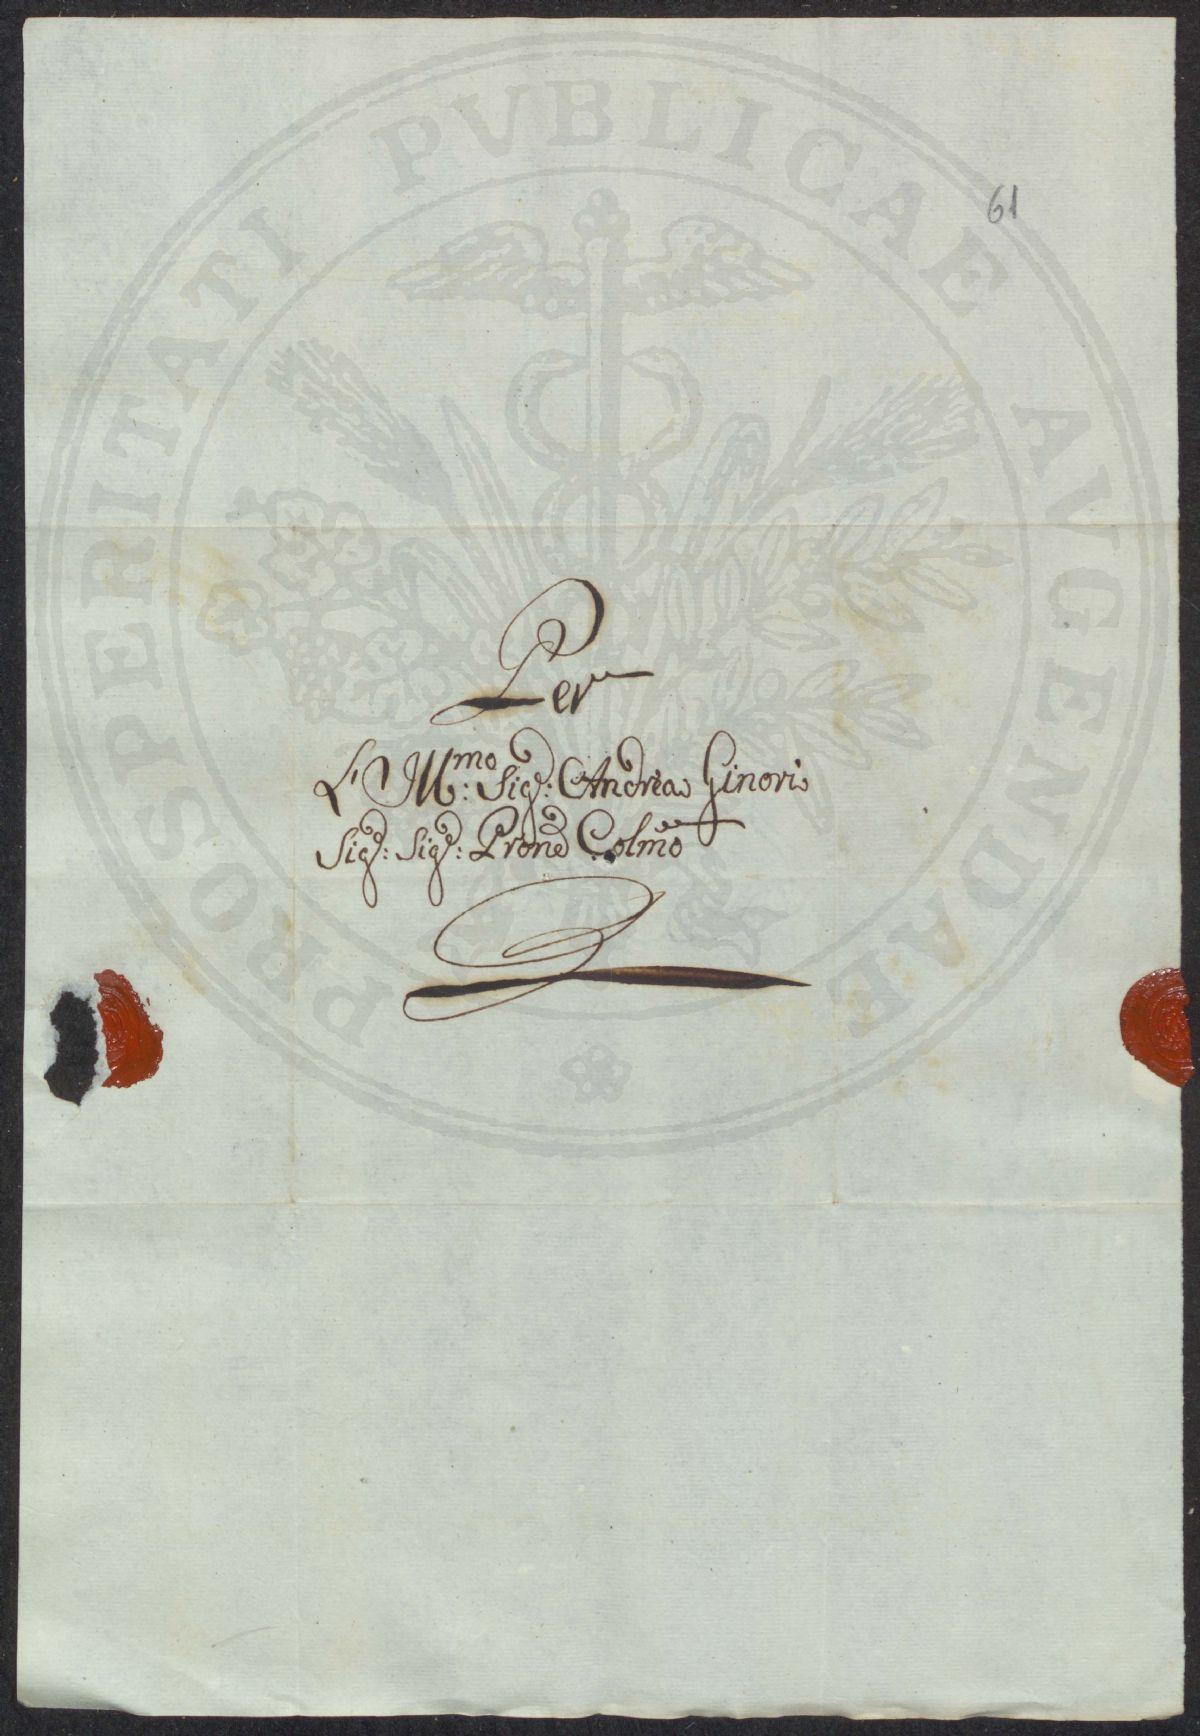 PROSPERITATI PVBLICAE AVGENDAE
61
Per
L'Ill:mo Sig:e Andrea Ginori
Sig:e Sig:e Prone Colmo